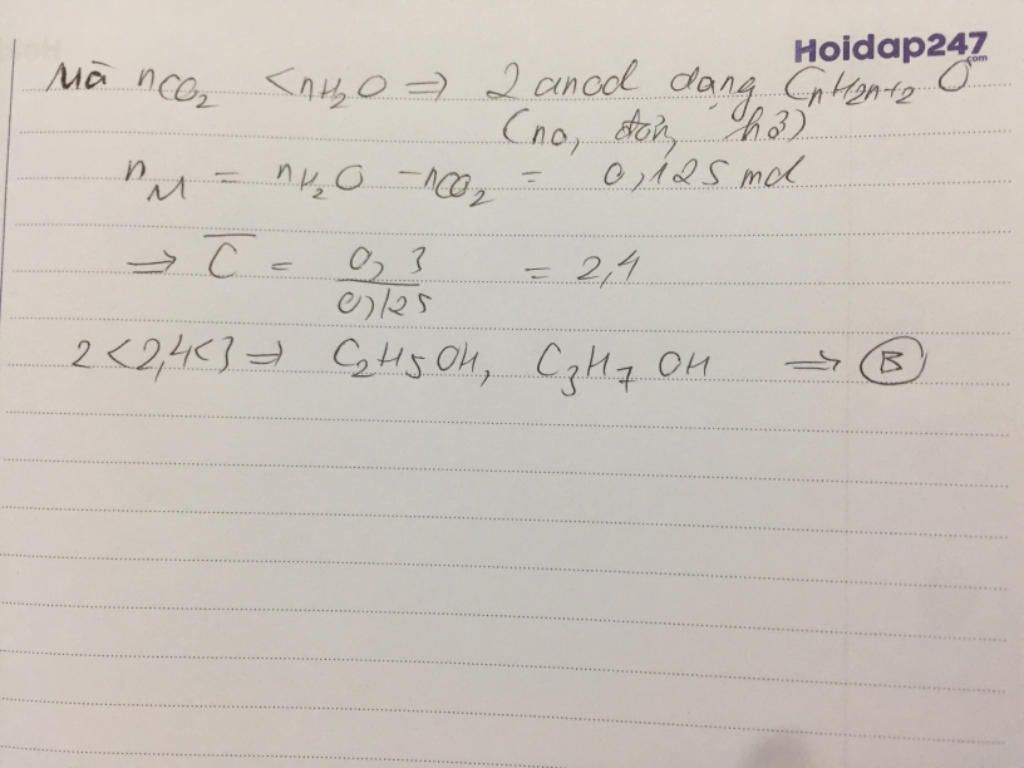 Hoidap247
.com
Mà nCO₂ < nH₂O ⇒ 2 ancol dạng CnH2n+2 O
(no, đơn, hở)
nM = nH₂O - nCO₂ = 0,125 mol
⇒ C̅ = 0,3 / 0,125 = 2,4
2 < 2,4 < 3 ⇒ C₂H₅OH, C₃H₇OH ⇒ B